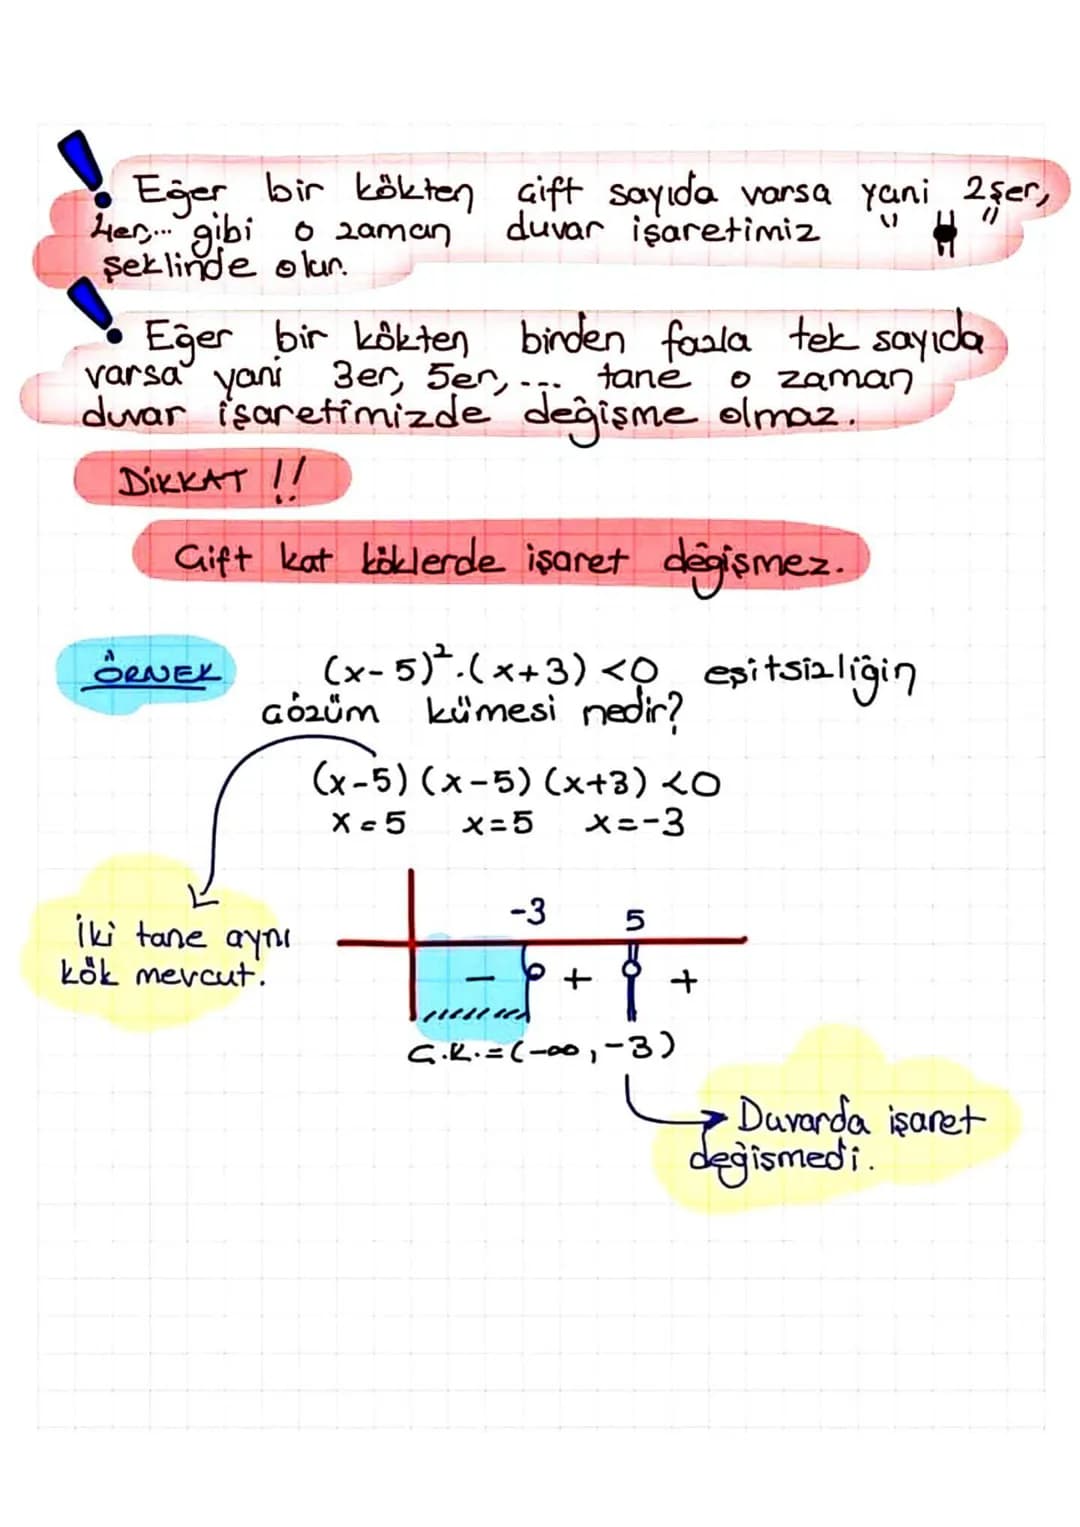 Eğer bir kökten çift sayıda varsa yani 2şer,
4er,... gibi o zaman duvar işaretimiz " "
şeklinde olur.
Eğer bir kökten birden fazla tek sayıda
varsa yani 3er, 5er,... tane o zaman
duvar işaretimizde değişme olmaz.
DİKKAT !!
Çift kat köklerde işaret değişmez.
ÖRNEK (x-5)².(x+3) <0 eşitsizliğin
çözüm kümesi nedir?
(x-5) (x-5) (x+3) <0
x=5 x=5 x=-3
İki tane aynı
kök mevcut.
-3 5
- + +
Ç.K.=(-∞,-3)
Duvarda işaret
değişmedi.